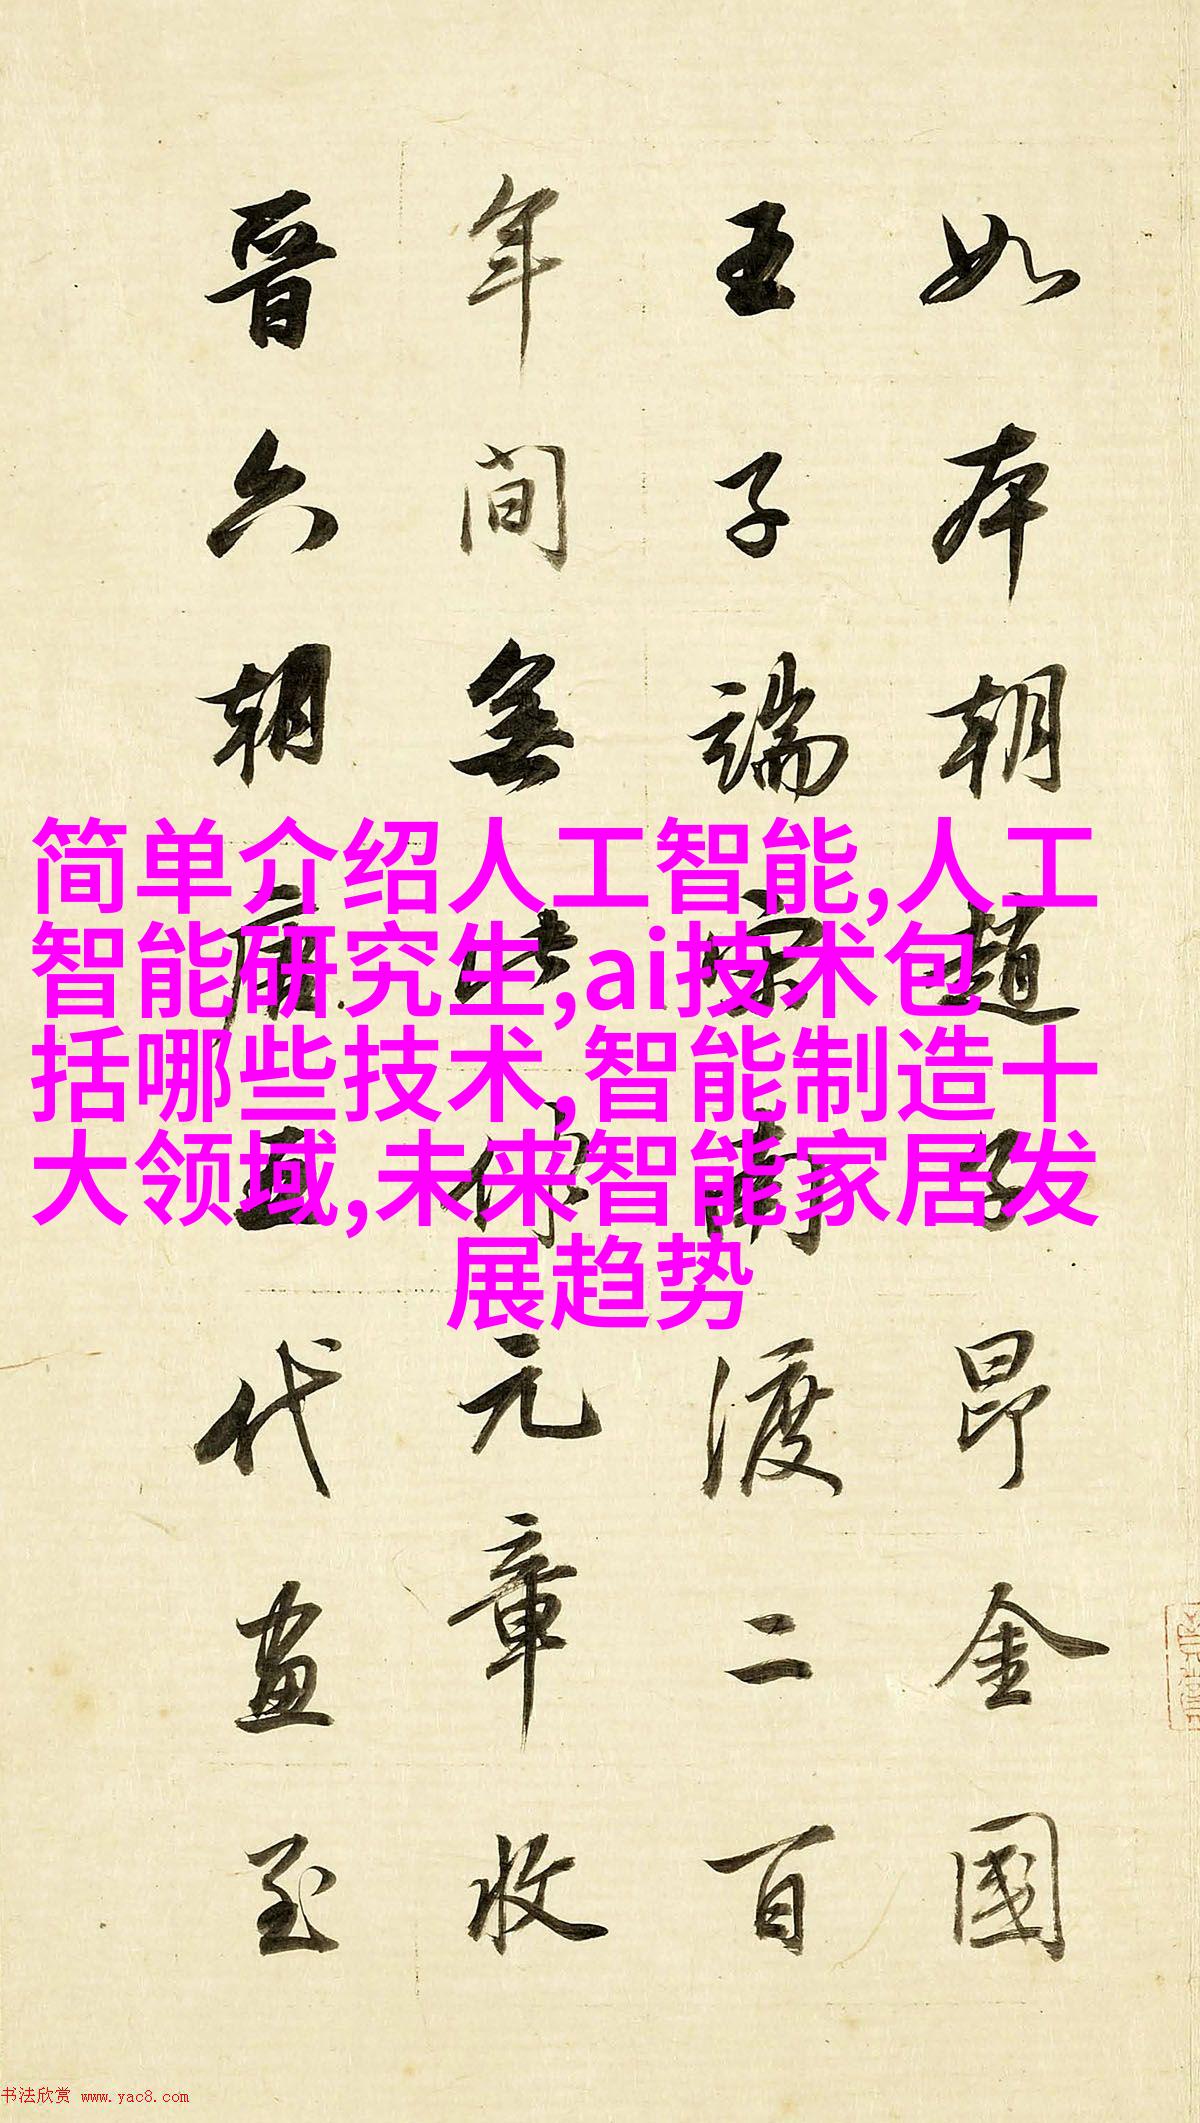 如本朝趙子昂金國
王子端宋南渡二百
年間無此作元章收
晉六朝唐五代畫至
简单介绍人工智能,人工
智能研究生,ai技术包
括哪些技术,智能制造十
大领域,未来智能家居发
展趋势
书法欣赏 www.yac8.com